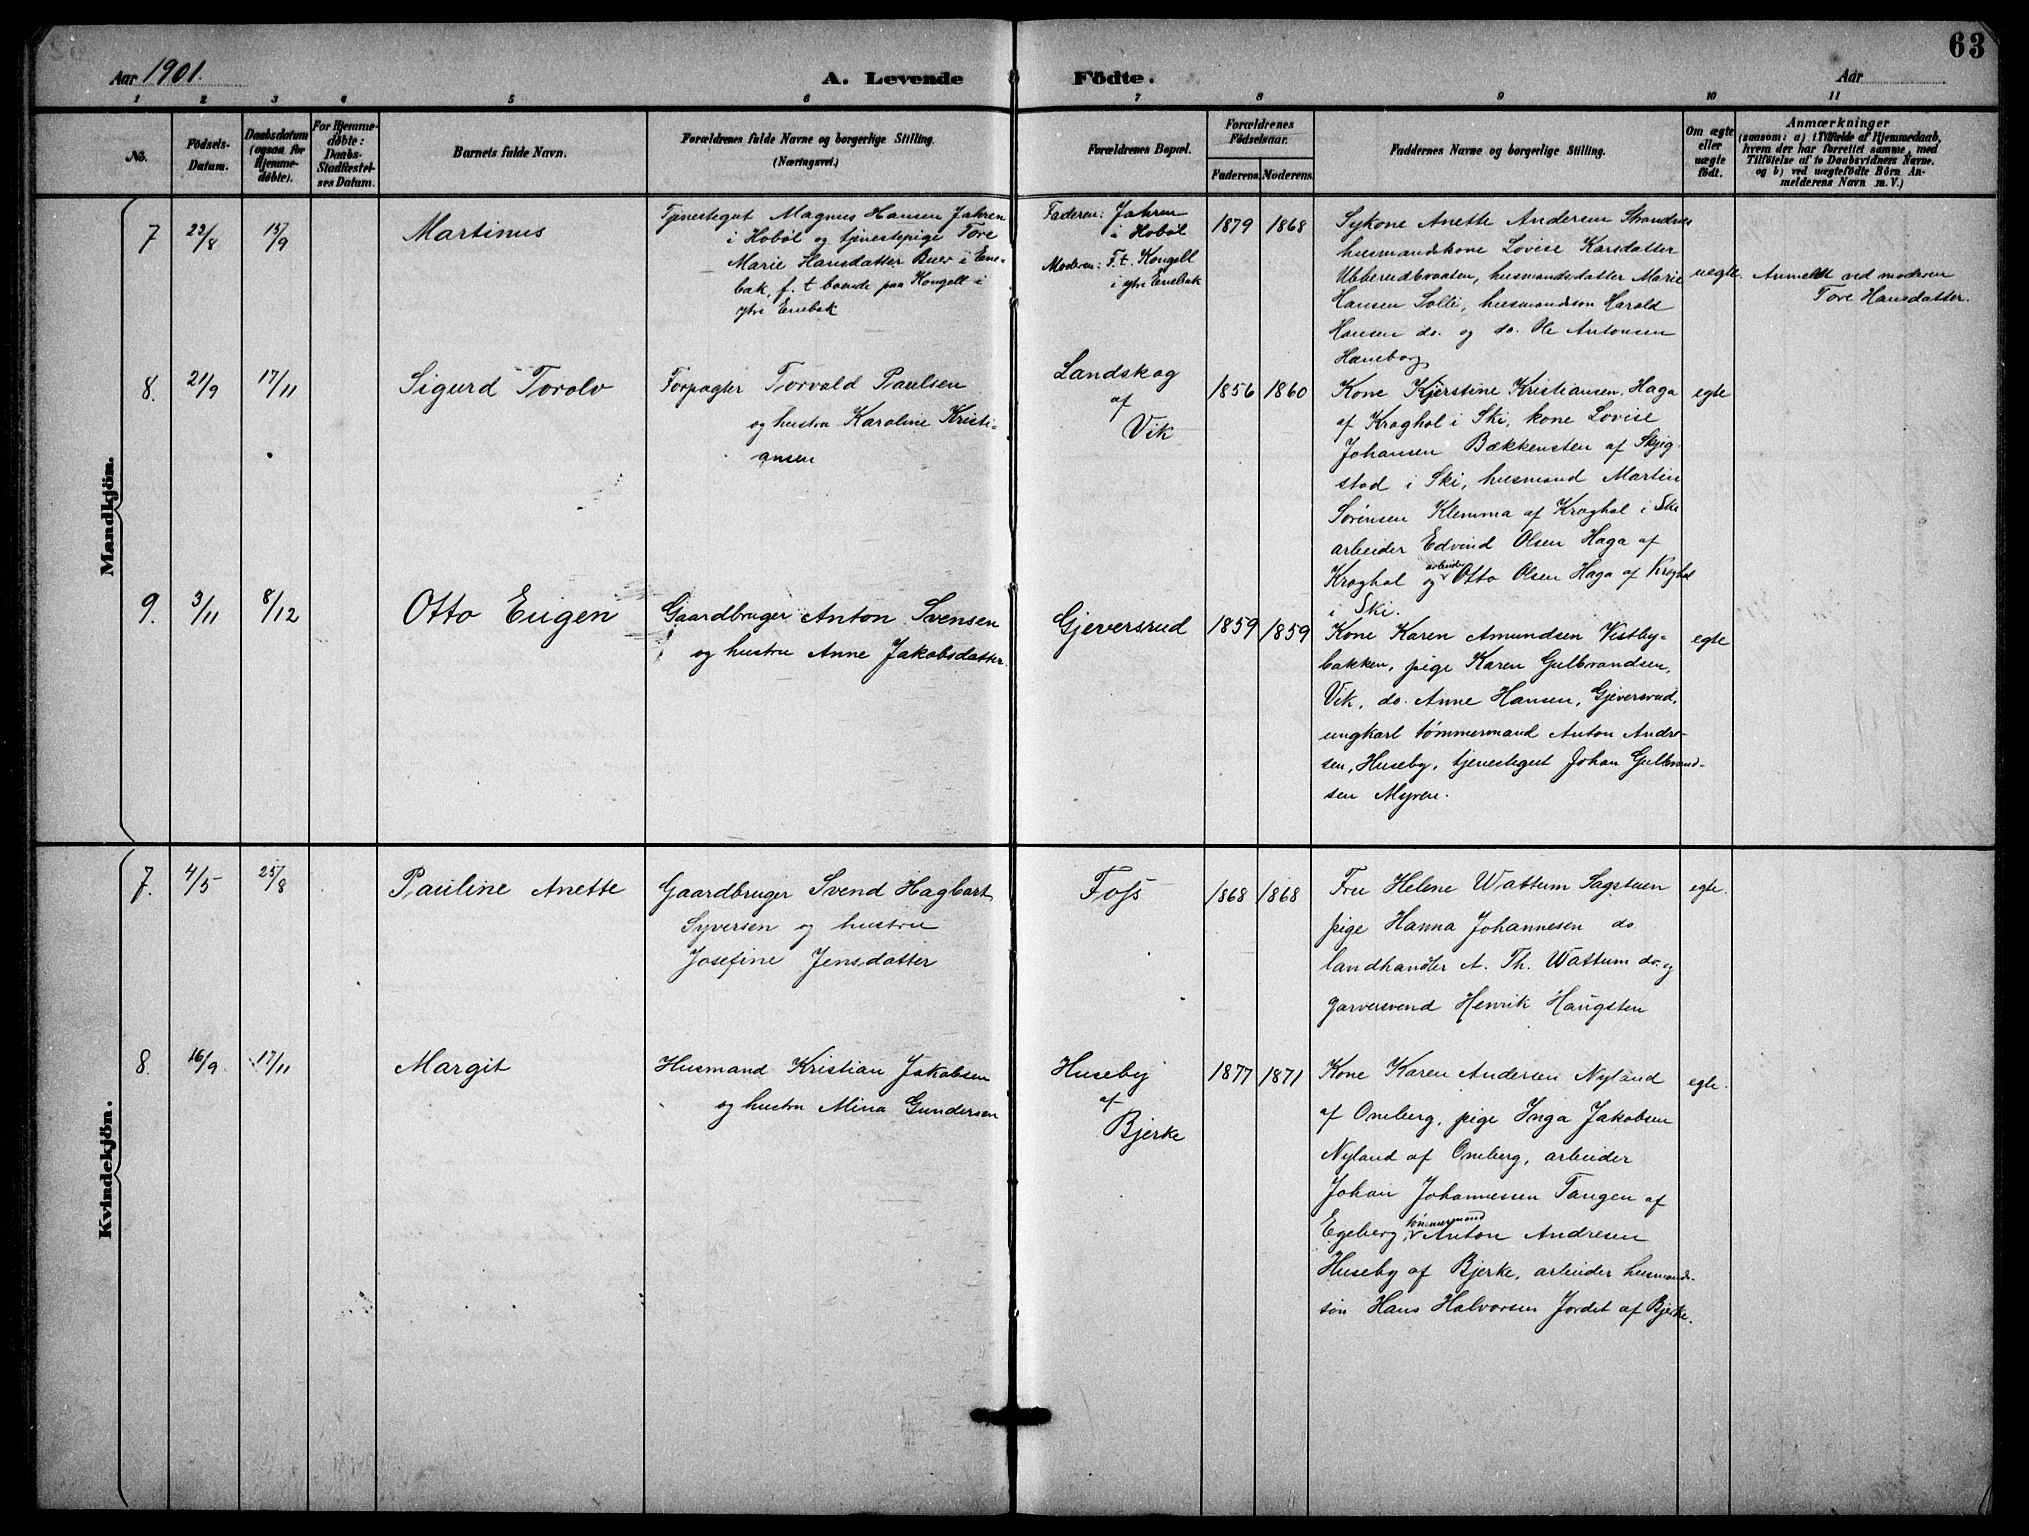 63
Aar 1901.
A. Levende Födte.
Aar
1 2 3 4 5 6 7 8 9 10 11
No.
Födsels-
Datum.
Daabsdatum
(ogsaa for
Hjemme-
døbte).
For Hjemme-
døbte:
Daabs-
Stadfæstel-
ses Datum.
Barnets fulde Navn.
Forældrenes fulde Navne og borgerlige Stilling.
(Næringsvei.)
Forældrenes Bopæl.
Forældrenes
Födselsaar.
Faderens. Moderens.
Faddernes Navne og borgerlige Stilling.
Om ægte
eller
uægte
født.
Anmærkninger
(saasom: a) i Tilfælde af Hjemmedaab,
hvem der har forrettet samme, med
Tilföielse af to Daabsvidners Navne.
og b) ved uægtefödte Börn An-
melderens Navn m. V.)
Mandkjön.
7 22/8 15/9 Martinus
Tjenestegut Magnus Hansen Jahren
i Hobøl og tjenestepige Tore
Marie Hansdatter Buer i Ene-
bak, f. t boende paa Kongell i
ytre Enebak
Faderen: Jahren
i Hobøl
Moderen: F.t. Kongell
i ytre Enebak
1879 1868
Sykone Anette Andersen Strandnes
husmandskone Lovise Karsdatter
Ubberudbraaten, husmandsdatter Marie
Hansen Solli, husmandsøn Harald
Hansen do. og do. Ole Antonsen
Haneborg
uegte.
Anmeldt ved moderen
Tore Hansdatter.
8. 21/9 17/11 Sigurd Torolv
Forpagter Torvald Paulsen
og hustru Karoline Kristi-
ansen
Landskog
af
Vik
1856 1860
Kone Kjerstine Kristiansen, Haga
af Kroghol i Ski, kone Lovise
Johansen Bækkensten af Skjeg-
stad i Ski, husmand Martin
Sørensen Klemma af Kroghol i Ski
arbeider Edvind Olsen Haga af
Kroghol og arbeider Otto Olsen Haga af Kroghol
i Ski.
egte
9. 3/11 8/12 Otto Eugen
Gaardbruger Anton Svensen
og hustru Anne Jakobsdatter.
Gjeversrud
1859 1859
Kone Karen Amundsen Vestby-
bakken, pige Karen Gulbrandsen,
Vik, do. Anne Hansen, Gjeversrud,
ungkarl tømmermand Anton Andre-
sen, Huseby, tjenestegut Johan Gulbrand-
sen Myren.
egte
Kvindekjön.
7. 4/5 25/8 Pauline Anette
Gaardbruger Svend Hagbart
Syversen og hustru
Josefine Jensdatter
Foss
1868 1868
Fru Helene Wattum Sagstuen
pige Hanna Johannesen do
landhandler A. Th. Wattum do. og
garversvend Henrik Haugsten
egte.
8. 16/9 17/11 Margit
Husmand Kristian Jakobsen
og hustru Mina Gundersen
Huseby
af
Bjerke
1877 1871
Kone Karen Andersen Nyland
af Oneberg, pige Inga Jakobsen
Nyland af Oneberg, arbeider
Johan Johannessen Tangen af
Egeberg, tømmermand Anton Andresen
Huseby af Bjerke, arbeider husmand-
søn Hans Halvorsen Jordet af Bjerke.
egte.